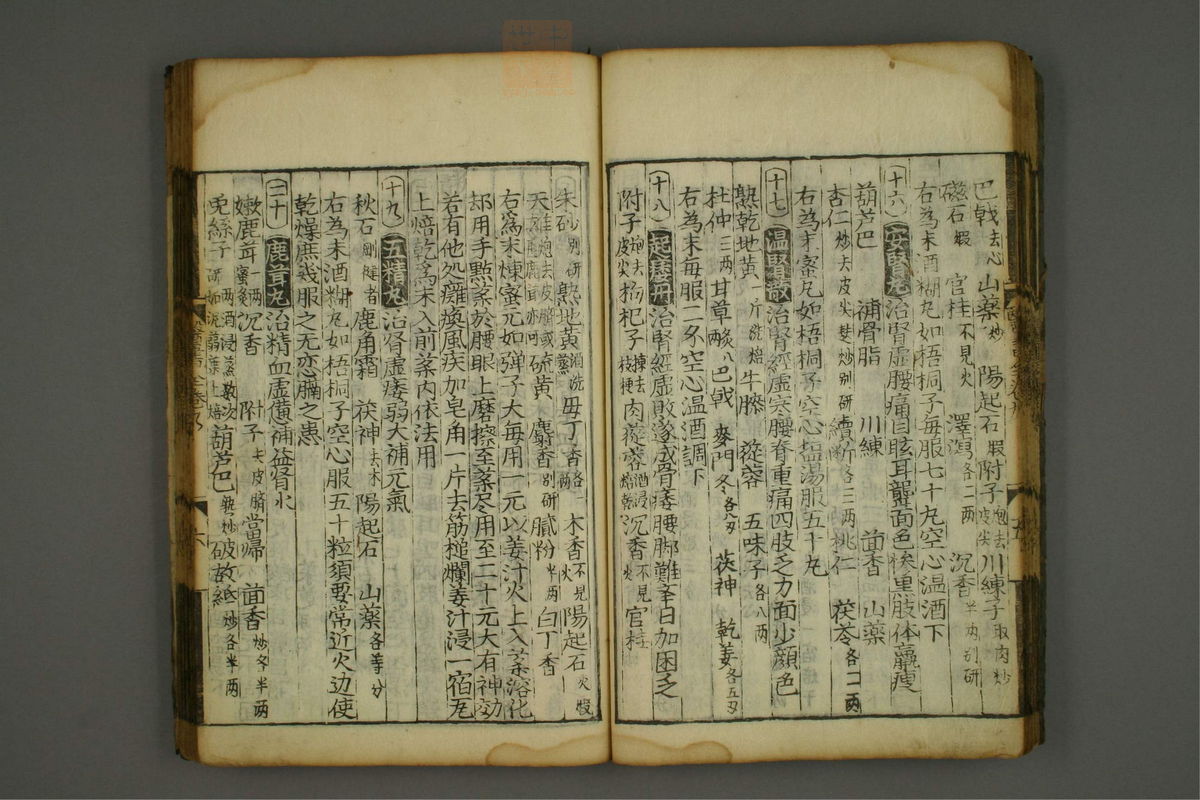 巴戟去心 山藥炒 陽起石煅 附子炮去皮尖 川練子取肉炒
磁石煅 官桂不見火 澤瀉各二兩 沉香半两別研
右為末酒糊丸如梧桐子每服七十丸空心温酒下
十六 安腎丸 治腎虚腰痛目眩耳聾面色慘黒肢体羸瘦
葫芦巴 補骨脂 川練 茴香 山藥
杏仁炒去皮尖 炒別研 續断各三两 桃仁 茯苓各二两
右為末蜜丸如梧桐子空心塩湯服五十丸
十七 温腎散 治腎經虚寒腰脊重痛四肢乏力面少顔色
熟乾地黄一斤洗焙 牛膝 蓯蓉 五味子各八两
杜仲三两 甘草炙八两 巴戟 麥門冬各八刄 茯神 乾姜各五刄
右為末每服二分空心温酒調下
十八 起痿丹 治腎經虚敗遂成骨痿腰脚難辛日加困乏
附子炮去皮尖 枸杞子揀去枝梗 肉蓯蓉酒浸焙乾 沉香不見火 官桂
朱砂別研 熟地黄酒洗 母丁香各一两 木香不見火 陽起石火煅
天雄炮去皮臍或附子亦可 硫黄 麝香別研 膩粉半两 白丁香
右為末煉蜜元如弹子大每用一元以姜汁火上入藥溶化
却用手㸃藥於腰眼上磨擦至藥尽用至二十元大有神効
若有他処癱瘓風疾加皂角一片去筋槌爛姜汁浸一宿瓦
上焙乾為末入前藥内依法用
十九 五精丸 治腎虚痿弱大補元氣
秋石剛健者 鹿角霜 茯神去木 陽起石 山藥各等分
右為末酒糊丸如梧桐子空心服五十粒須要常近火边使
乾燥庶幾服之无恋膈之患
二十 鹿茸丸 治精血虚憊補益腎水
嫩鹿茸一两蜜炙 沉香 附子去皮臍 當歸 茴香炒各半两
兎絲子一两酒浸蒸数次研 葫芦巴 破故紙炒各半两